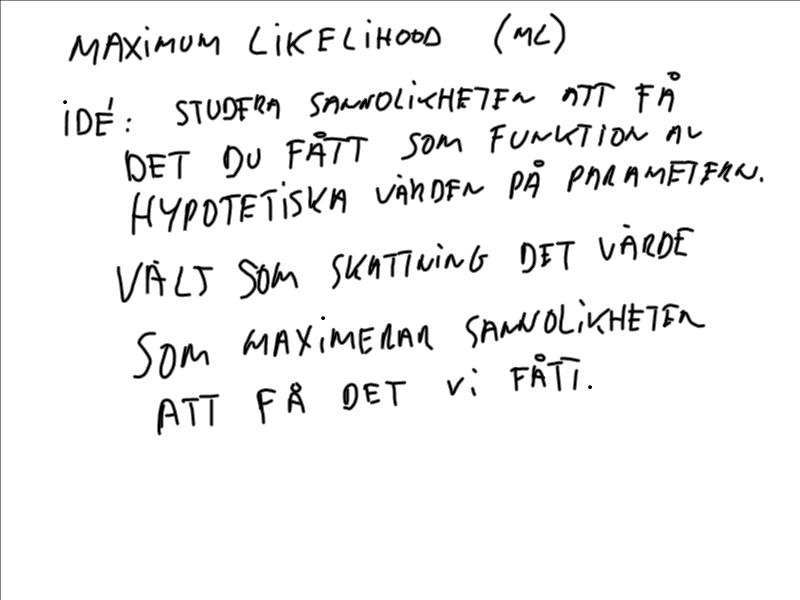 MAXIMUM LIKELIHOOD (ML)
IDÉ: STUDERA SANNOLIKHETEN ATT FÅ
DET DU FÅTT SOM FUNKTION AV
HYPOTETISKA VÄRDEN PÅ PARAMETERN.
VÄLJ SOM SKATTNING DET VÄRDE
SOM MAXIMERAR SANNOLIKHETEN
ATT FÅ DET VI FÅTT.